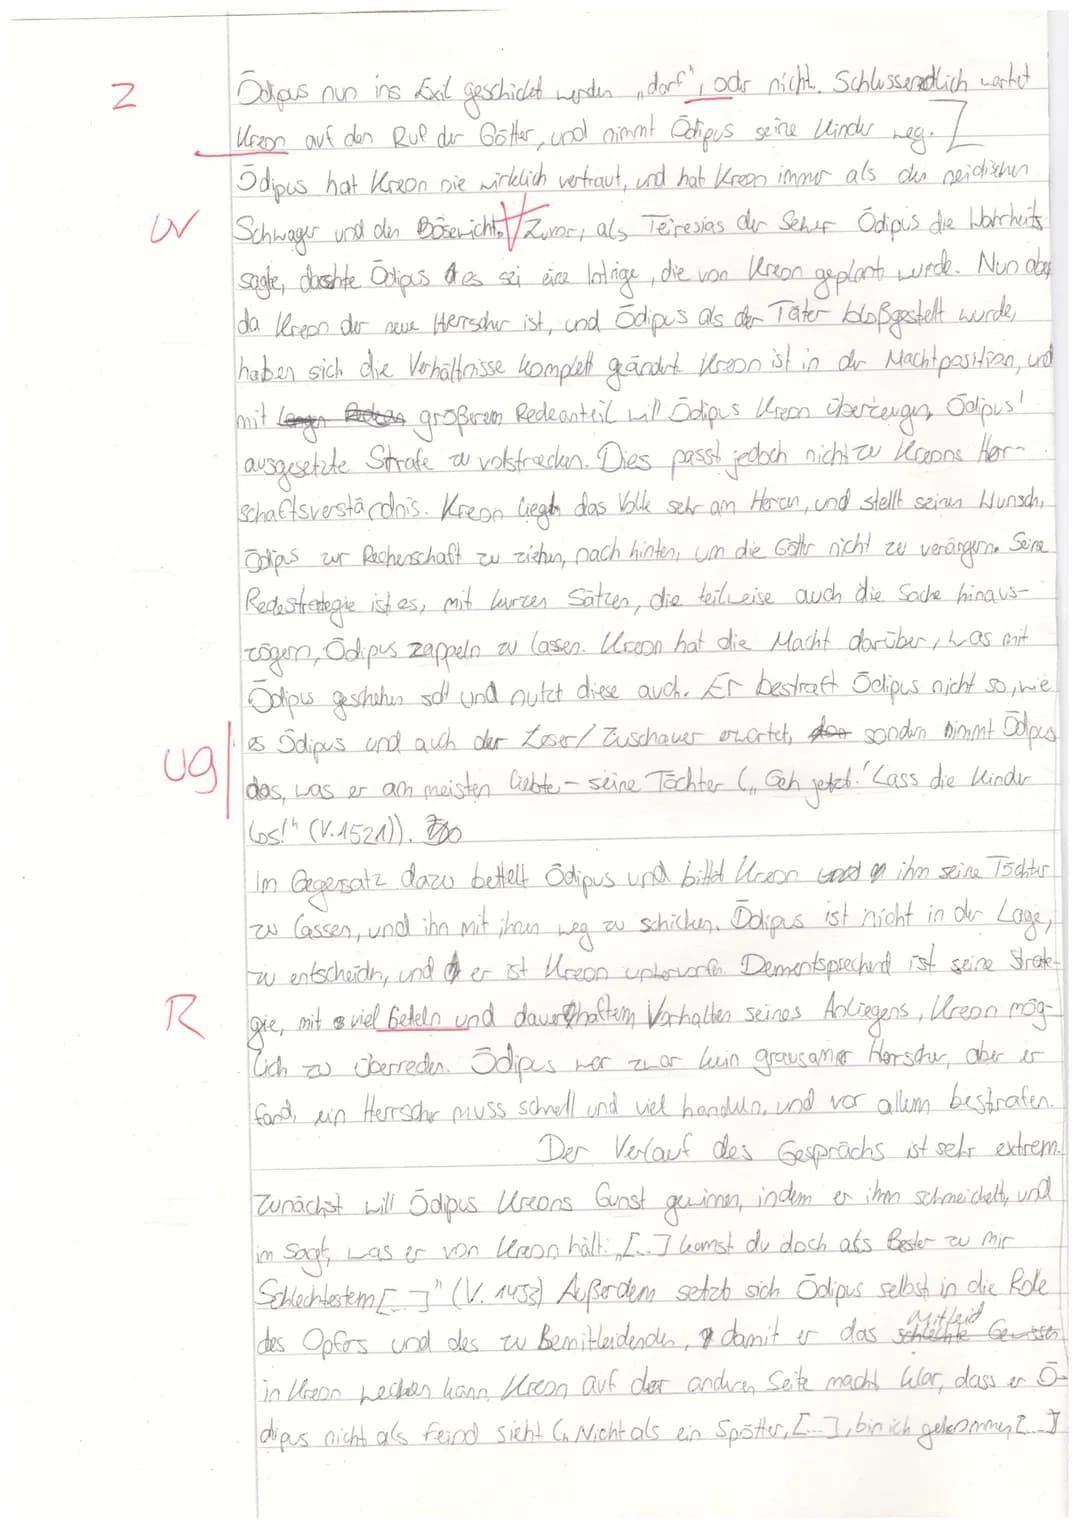 Z Ödipus nun ins Exil geschickt werden „darf", oder nicht. Schlussendlich wartet
Kreon auf den Ruf der Götter, und nimmt Ödipus seine Kinder weg.
Ödipus hat Kreon nie wirklich vertraut, und hat Kreon immer als den neidischen
W Schwager und den Bösewicht. Zuvor, als Teiresias der Seher Ödipus die Wahrheits
sagte, dachte Ödipus dies sei eine Intrige, die von Kreon geplant wurde. Nun aber
da Kreon der neue Herrscher ist, und Ödipus als der Täter bloßgestellt wurde,
haben sich die Verhältnisse komplett geändert. Kreon ist in der Machtposition, und
mit größerem Redeanteil will Ödipus Kreon überzeugen, Ödipus'
ausgesetzte Strafe zu vollstrecken. Dies passt jedoch nicht zu Kreons Herr-
schaftsverständnis. Kreon liegt das Volk sehr am Herzen, und stellt seinen Wunsch,
Ödipus zur Rechenschaft zu ziehen, nach hinten, um die Götter nicht zu verärgern. Seine
Redestrategie ist es, mit kurzen Sätzen, die teilweise auch die Sache hinaus-
zögern, Ödipus zappeln zu lassen. Kreon hat die Macht darüber, was mit
Ödipus geschehen soll und nutzt diese auch. Er bestraft Ödipus nicht so, wie
ug es Ödipus und auch der Leser/Zuschauer erwartet, sondern nimmt Ödipus
das, was er am meisten liebte – seine Töchter („Geh jetzt! Lass die Kinder
los!" (V.1521)).
Im Gegensatz dazu bettelt Ödipus und bittet Kreon ihm seine Töchter
zu lassen, und ihn mit ihnen weg zu schicken. Ödipus ist nicht in der Lage,
zu entscheidn, und er ist Kreon unterworfen. Dementsprechend ist seine Strate-
R gie, mit viel beteln und dauerhaftem Vorhalten seines Anliegens, Kreon mög-
lich zu überreden. Ödipus war zwar kein grausamer Herrscher, aber er
fand, ein Herrscher muss schnell und viel handeln, und vor allem bestrafen.
Der Verlauf des Gesprächs ist sehr extrem.
Zunächst will Ödipus Kreons Gunst gewinnen, indem er ihm schmeichelt, und
im sagt, was er von Kreon hält: „[...] kamst du doch als Bester zu mir
Schlechtestem [...]" (V. 1433) Außerdem setzt sich Ödipus selbst in die Rolle
des Opfers und des zu Bemitleidenden, damit er das Mitleid
in Kreon wecken kann. Kreon auf der anderen Seite macht klar, dass er Ö-
dipus nicht als Feind sieht („Nicht als ein Spötter, [...], bin ich gekommen [...]